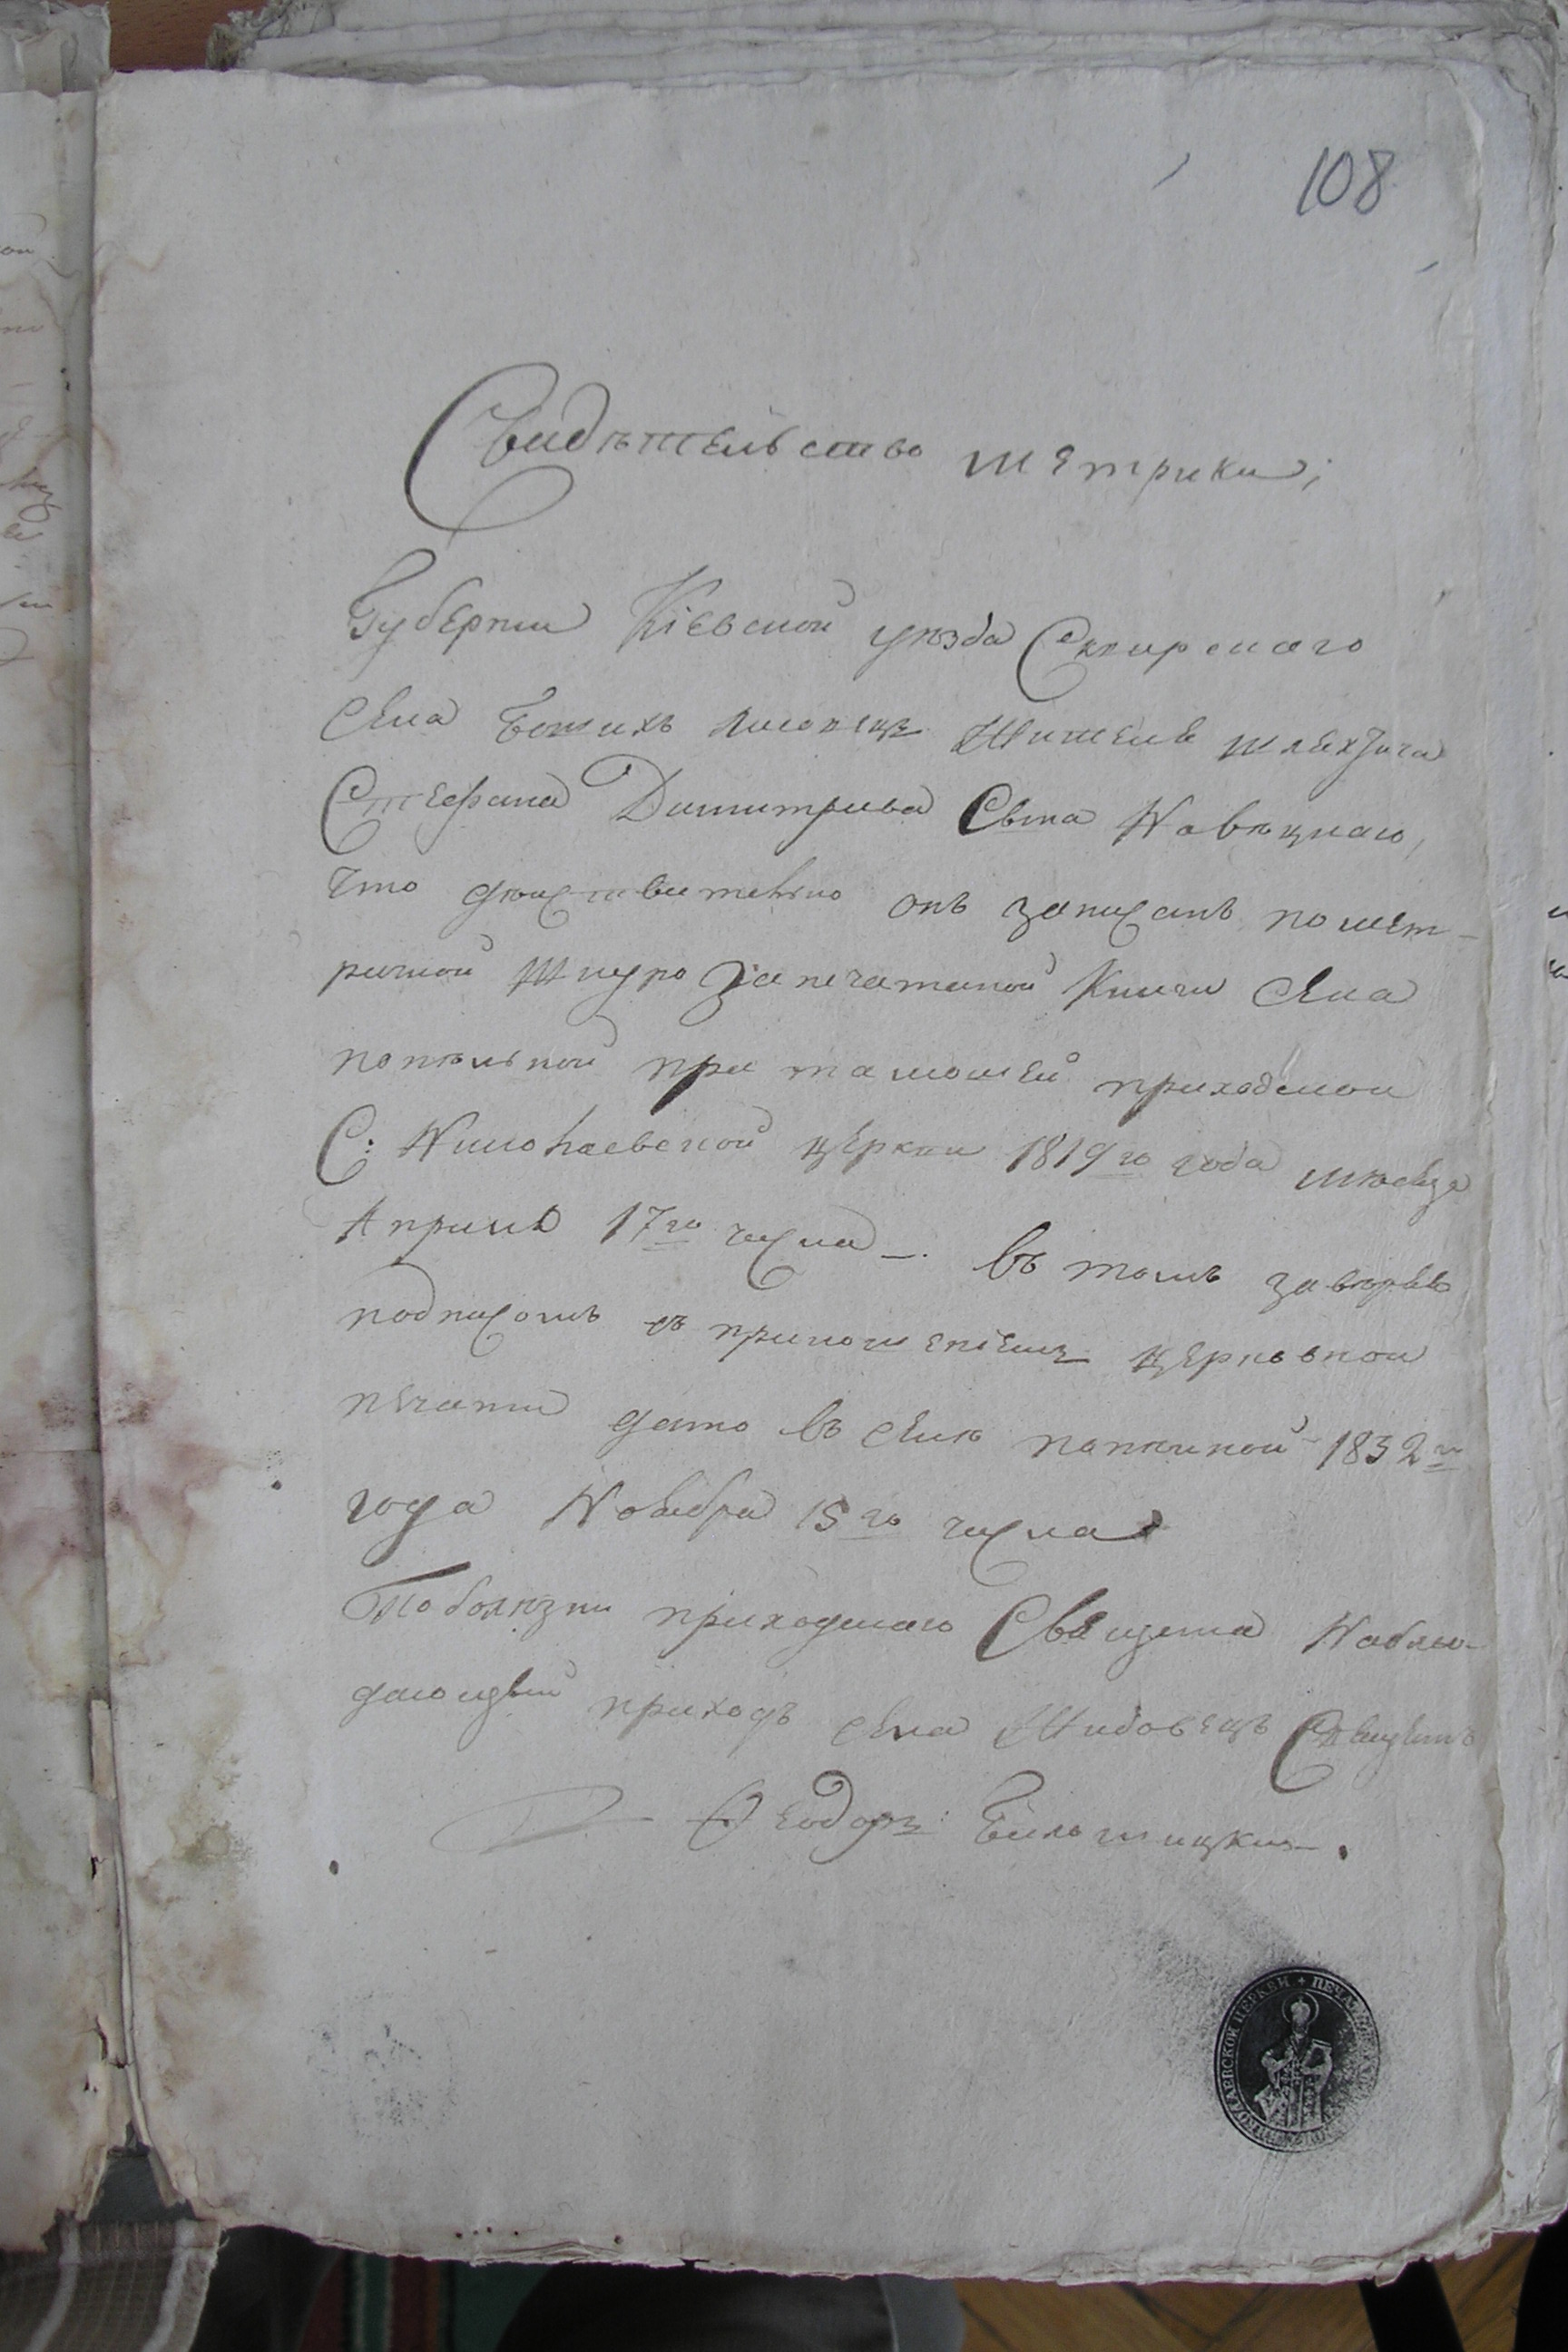 108
Свидѣтельство метрики;
Губернии Кіевской уѣзда Сквирского
Села жителя шляхтича
Стефана Димитрива Сына Новѣцкаго,
что дѣйствительно онъ записанъ по мет-
ричной Шнуро Запечатаной Книги Села
попѣльной при тамошей приходской
С: Николаевской церкви 1819го года мѣсяца
Априля 17го числа —. Въ томъ завѣряю
подписомъ съ приложеніемъ церковной
печати дано въ Селѣ попѣлной 1832го
года Ноября 15го числа
По болѣзни приходскаго Священа Наблю-
дающый приходъ села Жидовецъ Священъ
Феодоръ
НИКОЛАЕВСКОЙ ЦЕРКВИ + ПЕЧА